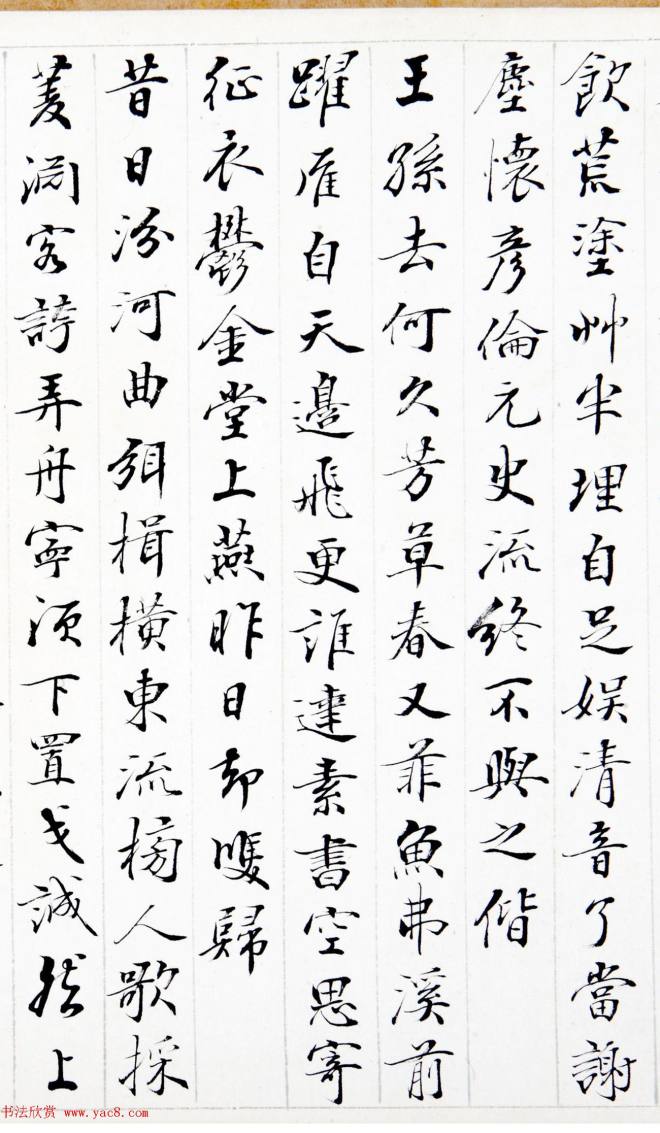 飲荒塗艸半埋自足娛清音了當謝
塵懷彥倫元史流終不與之偕
王孫去何久芳草春又菲魚弗溪前
躍雁自天邊飛更誰達素書空思寄
征衣鬱金堂上燕昨日却雙歸
昔日汾河曲弭楫橫東流榜人歌採
菱淵客誇弄舟寧須下置弋誠然上
书法欣赏 www.yac8.com